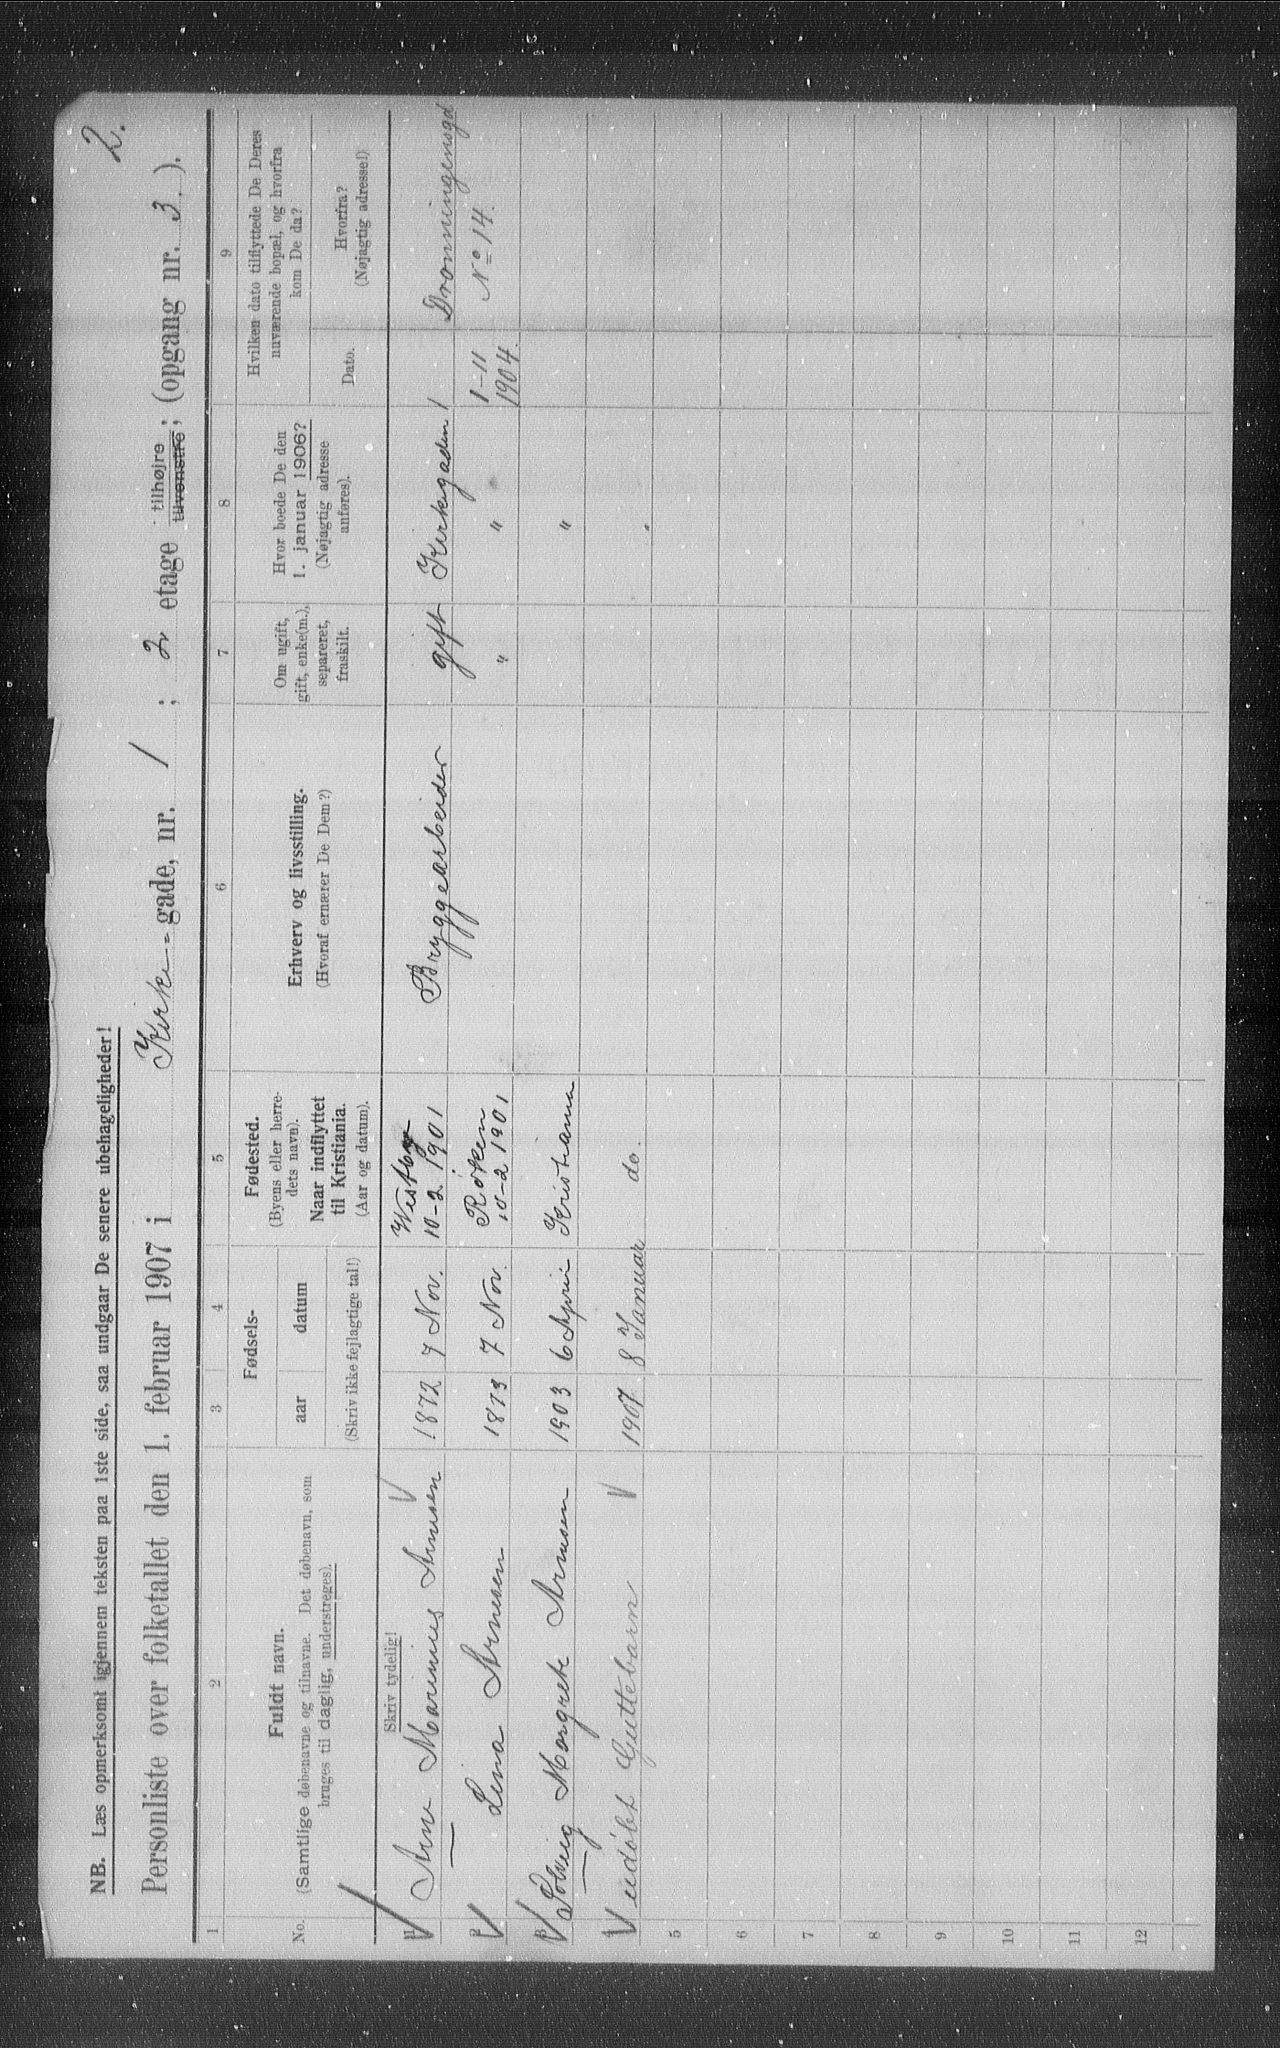 2.
NB. Læs opmerksomt igjennem teksten paa 1ste side, saa undgaar De senere ubehageligheder!
Personliste over folketallet den 1. februar 1907 i Kirke-gade, nr. 1 ; 2 etage tilhøjre tilvenstre; (opgang nr. 3. ).
1 2 3 4 5 6 7 8 9
No.
Fuldt navn.
(Samtlige døbenavne og tilnavne. Det døbenavn, som
bruges til daglig, understreges).
Fødsels-
aar datum
(Skriv ikke fejlagtige tal!)
Fødested.
(Byens eller herre-
dets navn).
Naar indflyttet
til Kristiania.
(Aar og datum).
Erhverv og livsstilling.
(Hvoraf ernærer De Dem?)
Om ugift,
gift, enke(m.),
separeret,
fraskilt.
Hvor boede De den
1. januar 1906?
(Nøjagtig adresse
anføres).
Hvilken dato tilflyttede De Deres
nuværende bopæl, og hvorfra
kom De da?
Dato.
Hvorfra?
(Nøjagtig adresse!)
Skriv tydelig!
1 Arne Marinius Arnesen 1872 7 Nov. Westby 10-2 1901 Bryggearbeider gift Kirkegaden 1 Dronningensgd
2 Lina Arnesen 1873 7 Nov. Røken 10-2 1901 " " 1-11 1904. No 14.
3 Solveig Margrete Arnesen 1903 6 April Kristiania "
4 udøbt Guttebarn 1907 8 Januar do. "
5
6
7
8
9
10
11
12